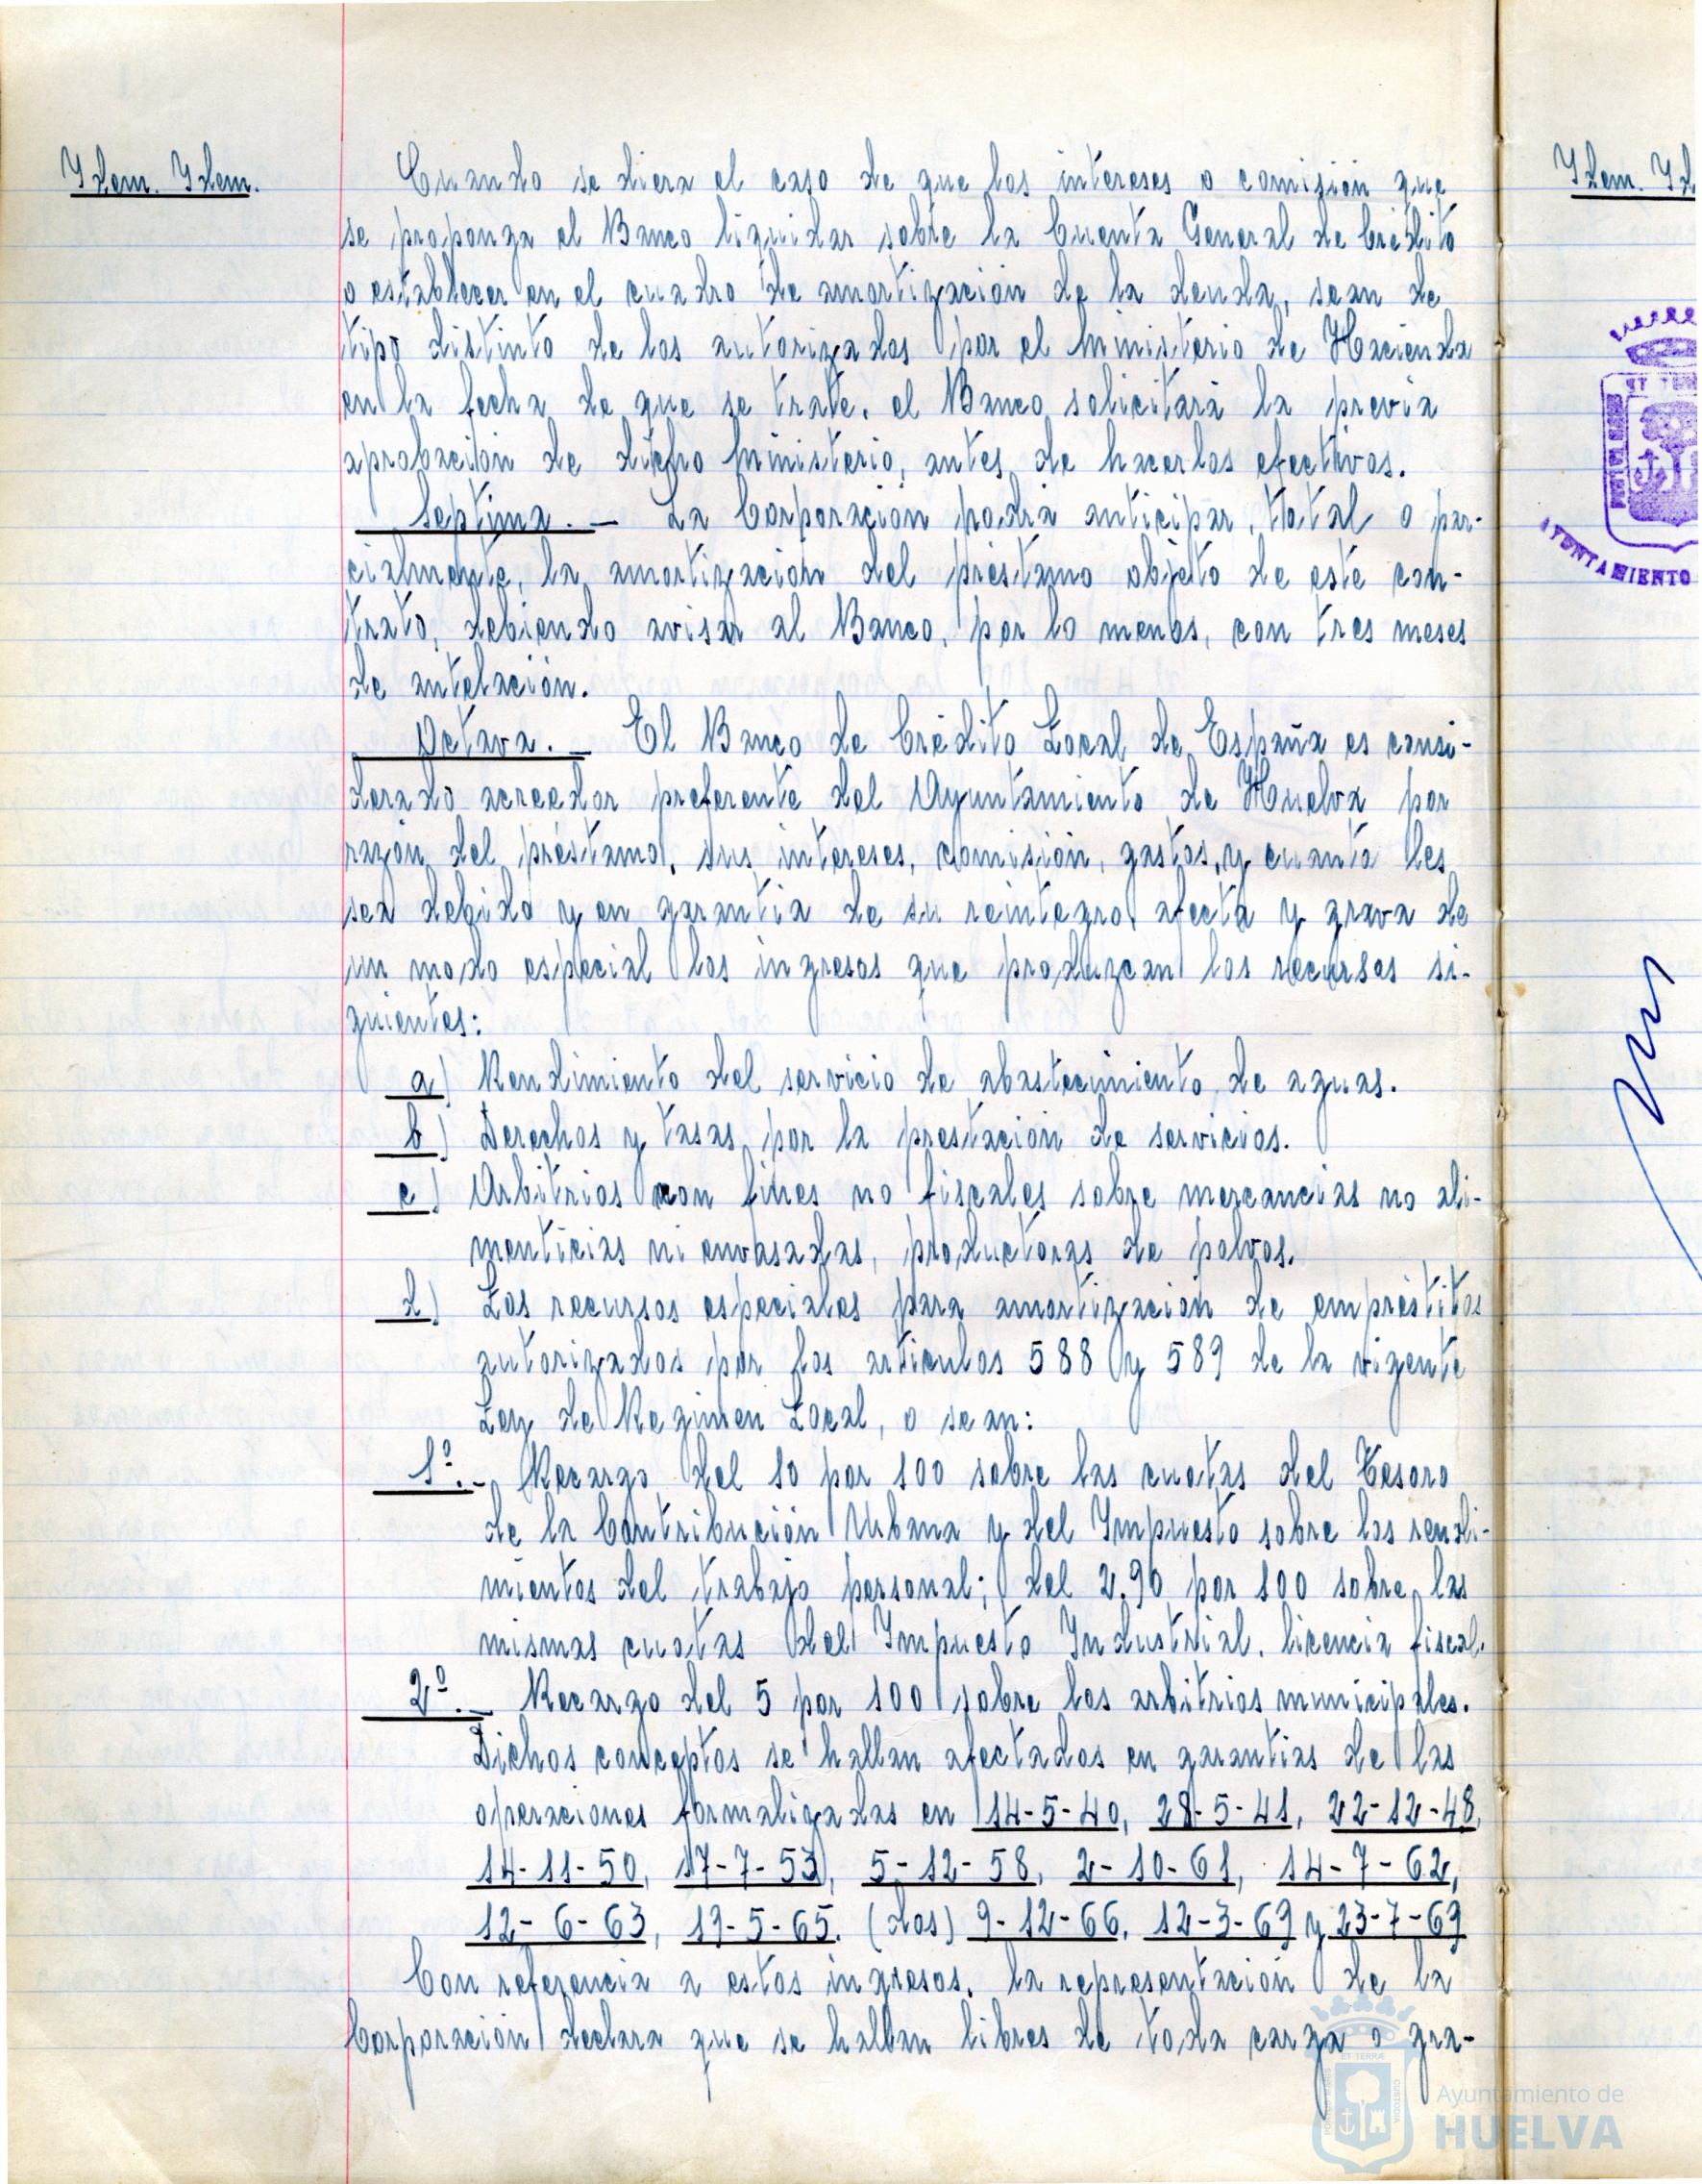 Idem. Idem.
Cuando se diera el caso de que los intereses o comisión que
se proponga el Banco liquidar sobre la Cuenta General de Crédito
o establecer en el cuadro de amortización de la deuda, sean de
tipo distinto de los autorizados por el Ministerio de Hacienda
en la fecha de que se trate, el Banco solicitará la previa
aprobación de dicho Ministerio, antes de hacerlos efectivos.
Septima. — La Corporación podrá anticipar, total o par-
cialmente, la amortización del préstamo objeto de este con-
trato, debiendo avisar al Banco, por lo menos, con tres meses
de antelación.
Octava. — El Banco de Crédito Local de España es consi-
derado acreedor preferente del Ayuntamiento de Huelva por
razón del préstamo, sus intereses, comisión, gastos, y cuanto les
sea debido y en garantía de su reintegro, afecta y grava de
un modo especial los ingresos que produzcan los recursos si-
guientes:
a) Rendimiento del servicio de abastecimiento de aguas.
b) Derechos y tasas por la prestación de servicios.
c) Arbitrios con fines no fiscales sobre mercancias no ali-
menticias ni envasadas, productoras de polvos.
d) Los recursos especiales para amortización de empréstitos
autorizados por los articulos 588 y 589 de la vigente
Ley de Regimen Local, o sean:
1º.- Recargo del 10 por 100 sobre las cuotas del Tesoro
de la Contribución Urbana y del Impuesto sobre los rendi-
mientos del trabajo personal; del 2,90 por 100 sobre las
mismas cuotas del Impuesto Industrial, licencia fiscal.
2º.- Recargo del 5 por 100 sobre los arbitrios municipales.
Dichos conceptos se hallan afectados en garantias de las
operaciones formalizadas en 14-5-40, 28-5-41, 22-12-48,
14-11-50, 17-7-53, 5-12-58, 2-10-61, 14-7-62,
12-6-63, 19-5-65. (dos) 9-12-66, 12-3-69 y 23-7-69
Con referencia a estos ingresos, la representación de la
Corporación declara que se hallan libres de toda carga o gra-
Idem. Id
AYUNTAMIENTO
Ayuntamiento de
HUELVA